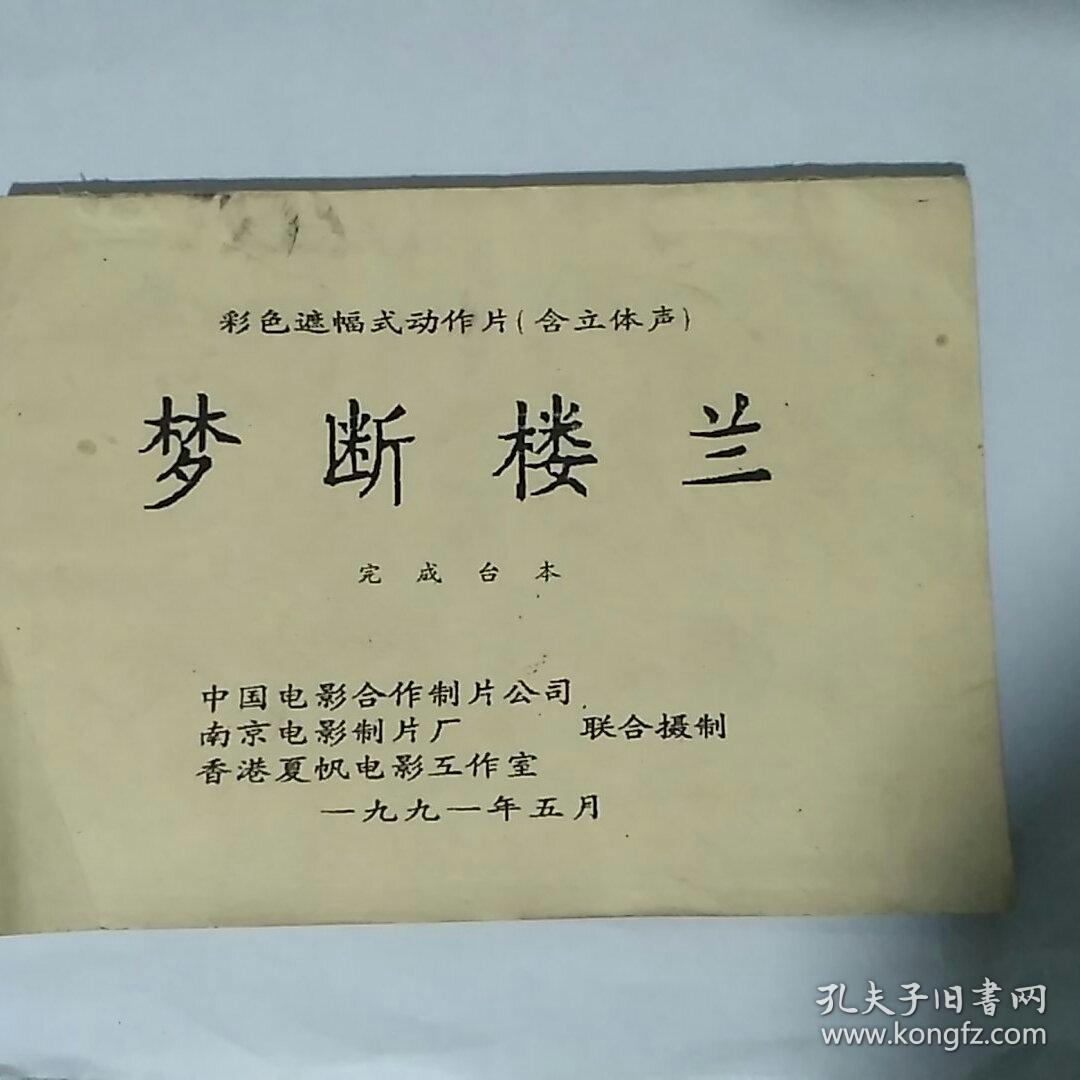 彩色遮幅式动作片(含立体声)
梦断楼兰
完成台本
中国电影合作制片公司
南京电影制片厂 联合摄制
香港夏帆电影工作室
一九九一年五月
孔夫子旧書网
www.kongfz.com